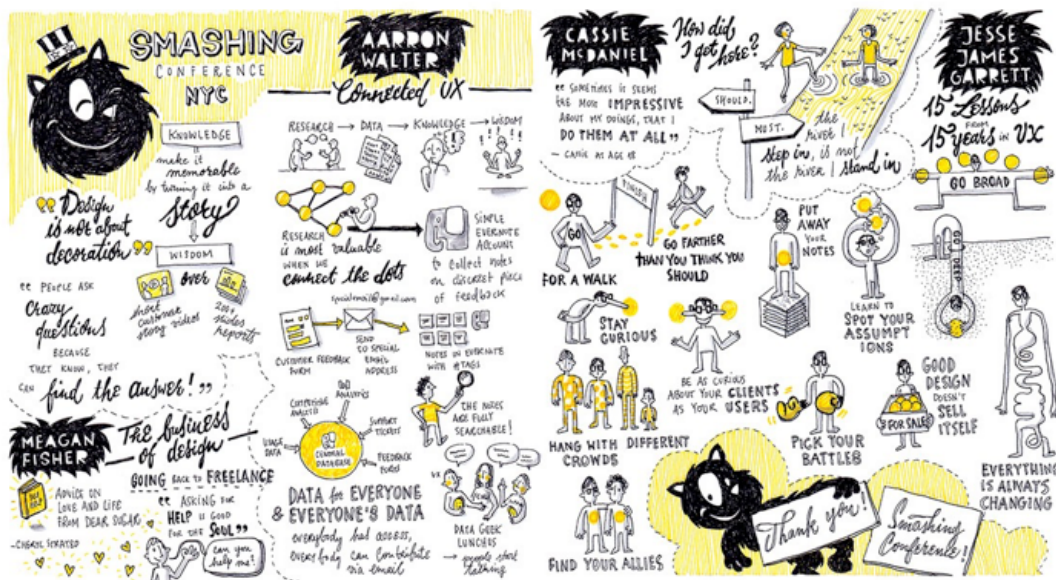 SMASHING
CONFERENCE
NYC
KNOWLEDGE
make it
memorable
by turning it into a
story
WISDOM
over
short
customer
story videos
200+
slides
reports
"Design
is not about
decoration"
"PEOPLE ASK
Crazy
questions
BECAUSE
THEY KNOW, THEY
CAN find the answer!"
MEAGAN
FISHER
The business
of design
GOING BACK TO FREELANCE
ADVICE ON
LOVE AND LIFE
FROM DEAR SUGAR
-CHERYL STRAYED
"ASKING FOR
HELP IS GOOD
FOR THE SOUL"
can you
help me?
AARRON
WALTER
Connected UX
RESEARCH → DATA → KNOWLEDGE → WISDOM
RESEARCH
is most valuable
WHEN WE
connect the dots
SIMPLE
EVERNOTE
ACCOUNT
to collect notes
on discreet piece
of feedback
specialemail@gmail.com
CUSTOMER FEEDBACK
FORM
SEND
TO SPECIAL
EMAIL
ADDRESS
NOTES IN EVERNOTE
WITH #TAGS
THE NOTES
ARE FULLY
SEARCHABLE!
ANALYTICS
SUPPORT
TICKETS
FEEDBACK
FORM
USAGE
DATA
CENTRAL
DATABASE
DATA for EVERYONE
& EVERYONE'S DATA
everybody has access,
everybody can contribute
via email
UX
DATA GEEK
LUNCHES
→ people start
talking
CASSIE
McDANIEL
How did
I get here?
"SOMETIMES IT SEEMS
THE MOST IMPRESSIVE
ABOUT MY DOINGS, THAT I
DO THEM AT ALL"
- CASSIE AT AGE
SHOULD.
MUST.
the
river I
step in, is not
the river I stand in
GO
FOR A WALK
FINISH
GO FARTHER
THAN YOU THINK YOU
SHOULD
PUT
AWAY
YOUR
NOTES
LEARN TO
SPOT YOUR
ASSUMPT
IONS
STAY
CURIOUS
BE AS CURIOUS
ABOUT YOUR CLIENTS
AS YOUR USERS
HANG WITH DIFFERENT
CROWDS
PICK YOUR
BATTLES
FIND YOUR ALLIES
JESSE
JAMES
GARRETT
15 Lessons
FROM
15 years in UX
GO BROAD
GO DEEP
FOR SALE!
GOOD
DESIGN
DOESN'T
SELL
ITSELF
EVERYTHING
IS ALWAYS
CHANGING
Thank you!
Smashing
Conference!